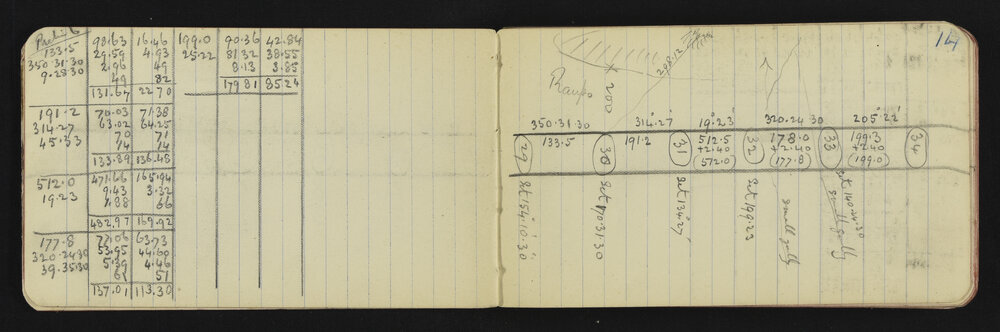 133.5 93.63 16.46 199.0 90.36 42.84
350.31.30 29.59 4.93 25.22 81.32 38.55
9.28.30 2.96 49 8.13 3.85
49 82 179 81 85 24
131.67 22 70
191.2 70.03 71.38
314.27 63.02 64.25
45.33 70 71
14 14
133.89 136.48
512.0 471.66 165.94
19.23 9.43 3.32
1.88 66
482.97 169.92
177.8 77.06 63.73
320.24 30 53.95 44.60
39.35.30 5.39 4.46
51
137.01 113.30
14
208.12
200
350.31.30 314.27 19.23 320.24 30 205.22
29 133.5 30 191.2 31 512.5 32 178.0 33 199.3 34
+2.40 +2.40 +2.40
(572.0) (177.8) (199.0)
Set 154.10.30
Set 170.31.30
Set 134.27
Set 199.23
small gully
Set 140.24.30
small gully